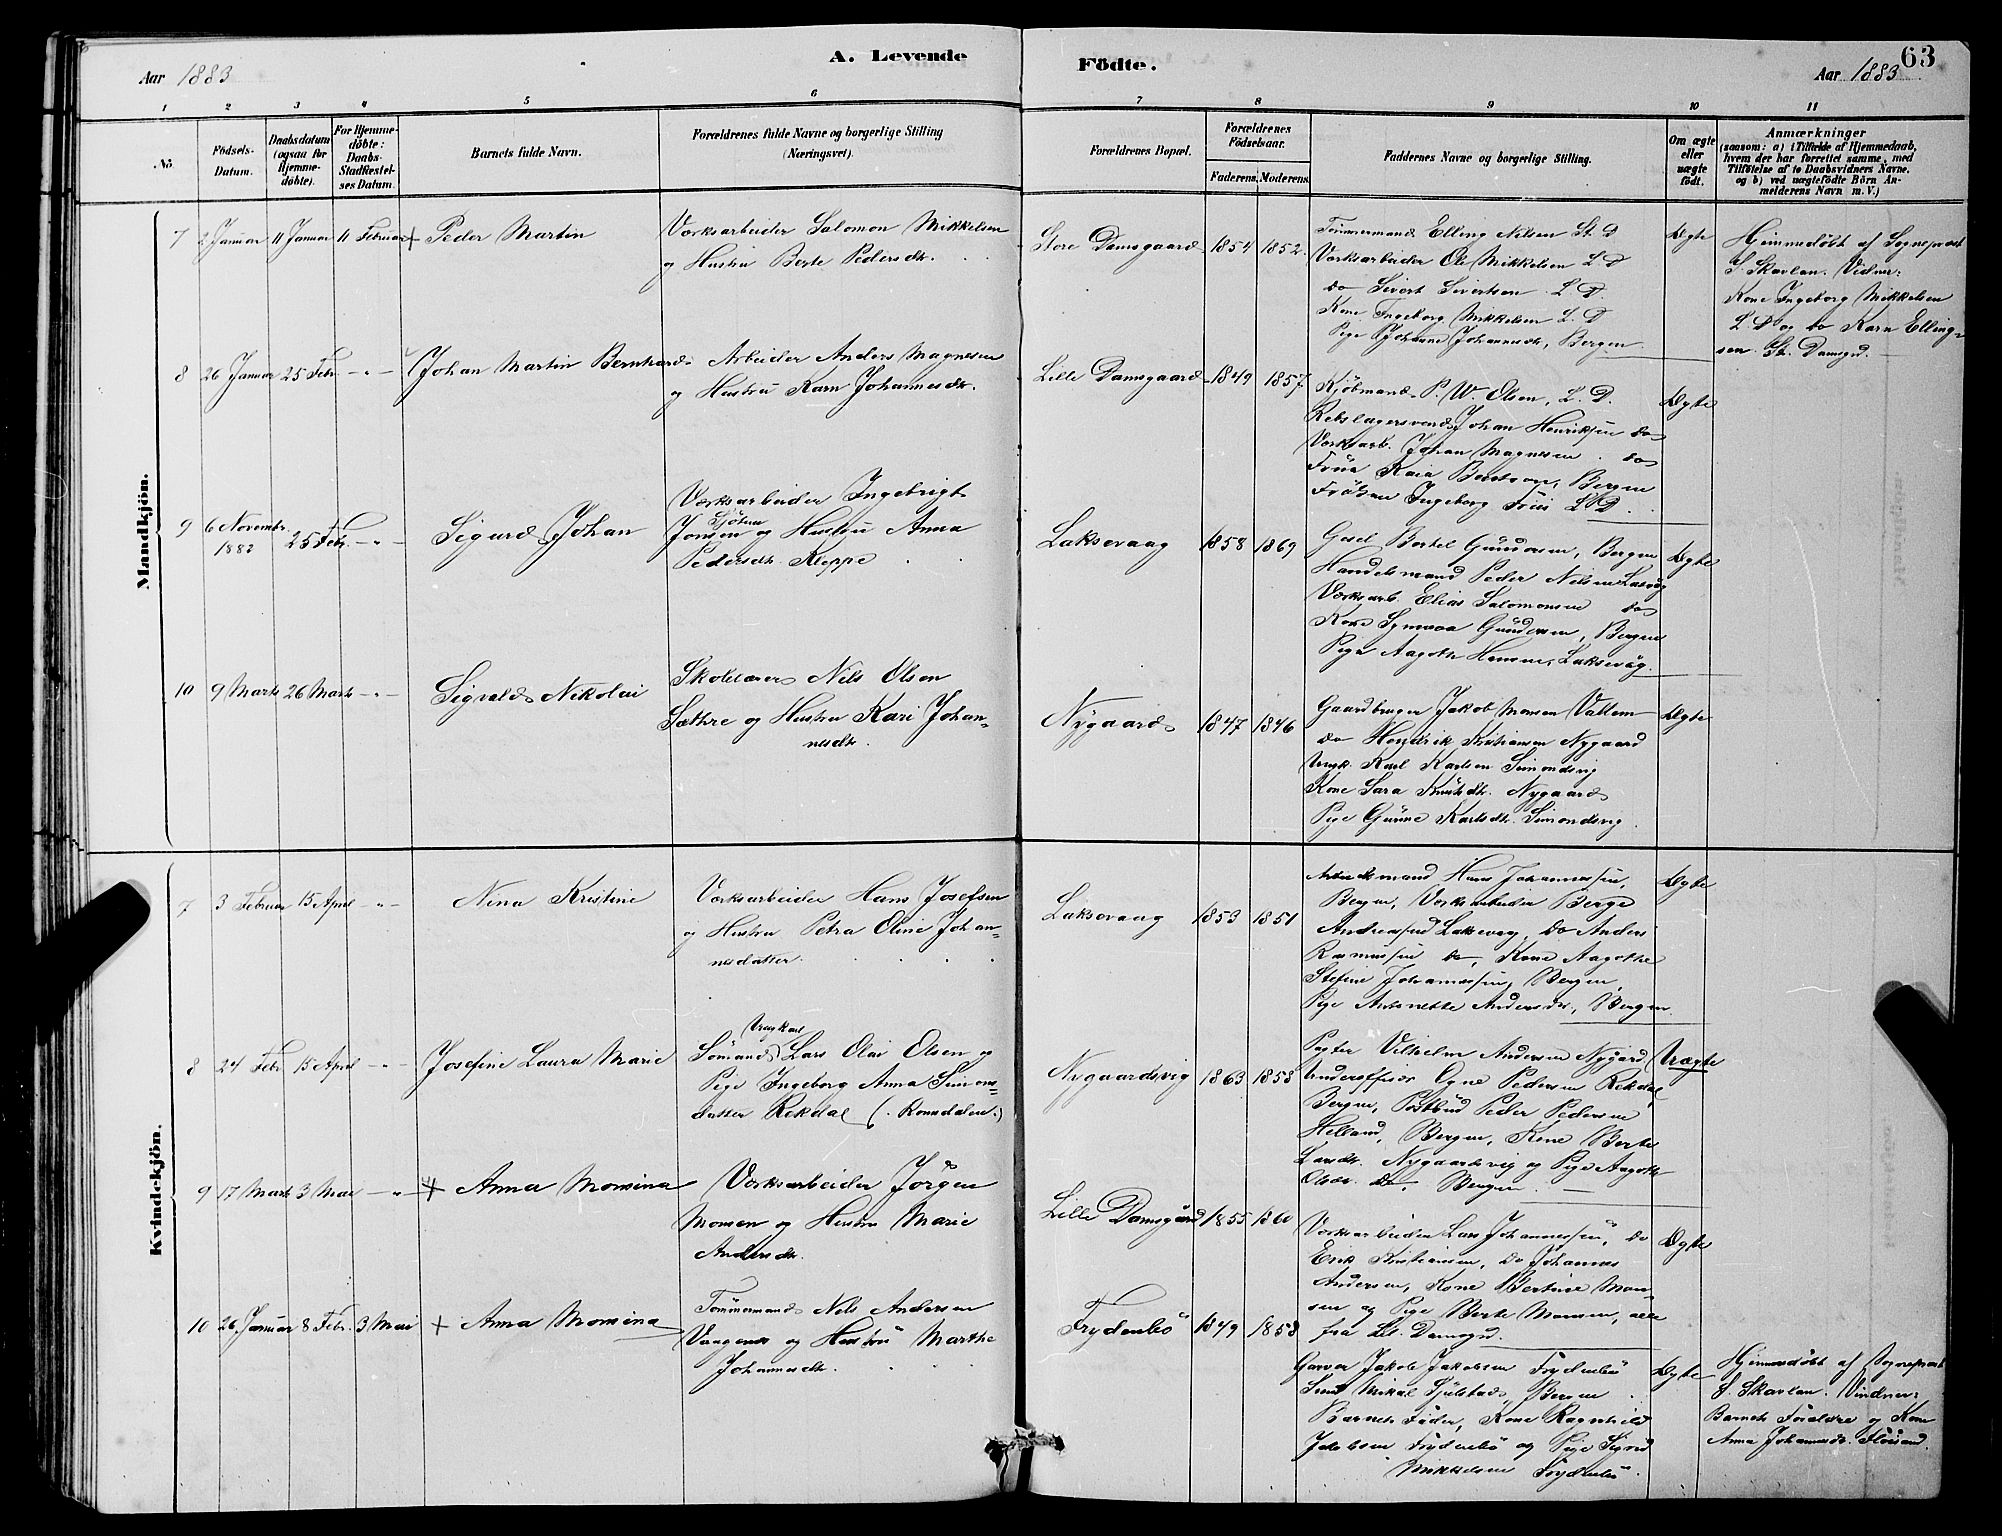 63
A. Levende Födte.
Aar 1883
Aar 1883
1 2 3 4 5 6 7 8 9 10 11
No
Födsels-
Datum.
Daabsdatum
(ogsaa for
Hjemme-
döbte).
For Hjemme-
döbte:
Daabs-
Stadfæstel-
ses Datum.
Barnets fulde Navn.
Forældrenes fulde Navne og borgerlige Stilling
(Næringsvei).
Forældrenes Bopæl.
Forældrenes
Födselsaar.
Faderens.
Moderens.
Faddernes Navne og borgerlige Stilling.
Om ægte
eller
uægte
födt.
Anmærkninger
(saasom: a) i Tilfælde af Hjemmedaab,
hvem der har forrettet samme, med
Tilföielse af to Daabsvidners Navne.
og b) ved uægtefödte Börn An-
melderens Navn m. V.)
Mandkjön.
7 2 Januar 11 Januar 11 Februar + Peder Martin
Værksarbeider Salomon Mikkelsen
og Hustru Berte Pedersdtr.
Store Damsgaard 1854 1852
Tømmermand Elling Nilsen St. D
Værksarbeider Ole Mikkelsen L. D
do Sivert Sivertsen L. D.
Kone Ingeborg Mikkelsen L. D
Pige Johanne Johannesdtr, Bergen
Ægte
Hjemmedøbt af Sognepræst
S. Skavlan. Vidner:
Kone Ingeborg Mikkelsen
L. D og do Karn Elling-
sen. St. Damsgd.
8 26 Januar 25 Febr. -"- Johan Martin Bernhard
Arbeider Anders Magnesen
og Hustru Karn Johannesdtr.
Lille Damsgaard 1849 1857
Kjøbmand P. W. Olsen, L. D.
Rebslagersvend Johan Henriksen do
Værksarb. Johan Magnesen do
Frue Kaia Berntson, Bergen
Frøken Ingeborg Friis L. D.
Ægte
9 6 Novembr. 25 Febr. -"- Sigurd Johan
1882
Værksarbeider Ingebrigt
Jonsen og Hustru Anna
Pedersdtr. Kleppe
Laksevaag 1858 1869
Gesel Bertel Gundersen, Bergen
Handelsmand Peder Nilsen Laksvåg
Værksarb. Elias Salomonsen do
Kone Synneva Gundersen, Bergen
Pige Aagoth Hansen, Laksevåg.
Ægte
10 9 Marts 26 Marts -"- Sigvald Nikolai
Skolelærer Nils Olsen
Sæthre og Hustru Kari Johan-
nesdtr.
Nygaard 1847 1846
Gaardbruger Jakob Monsen Vallem
do Hendrik Kristiansen Nygaard
Ungk. Karl Karlsen Simondsvig
Kone Sara Knutsdtr. Nygaard
Pige Gurine Karlsdtr. Simondsvig
Ægte
Kvindekjön.
7 3 Februar 15 April -"- Nina Kristine
Værksarbeider Hans Josefsen
og Hustru Petra Oline Johan-
nesdatter.
Laksevaag 1853 1851
Arbeidsmand Hans Johannessen,
Bergen, Værksarbeider Berge
Andreassen Laksevåg, do Anders
Rasmussen do, Kone Aagothe
Stefine Johannessen, Bergen,
Pige Antonette Andersdtr, Bergen
Ægte
8 24 Febr. 15 April -"- Josefine Laura Marie
Ungkarl
Sømand Lars Olai Olsen og
Pige Ingeborg Anna Simons-
datter Rekdal (Romsdalen.)
Nygaardsvig 1863 1858
Pagter Vilhelm Andersen Nygård,
Underoffiser Ogne Pedersen Rekdal,
Bergen, Postbud Peder Pedersen
Helland, Bergen, Kone Berte
Larsdtr. Nygaardsvig og Pige Aagoth
Olsdtr. do, Bergen.
Uægte
9 17 Marts 3 Mai -"- + Anna Monsina
Værksarbeider Jörgen
Monsen og Hustru Marie
Andersdtr.
Lille Damsgård 1855 1860
Værksarbeider Lars Johannessen, do
Erik Kristiansen, do Johannes
Andersen, Kone Bertine Mon-
sen og Pige Berte Monsen, alle
fra Lil. Damsgd.
Ægte
10 26 Januar 8 Febr. 3 Mai + Anna Monsina
Tømmermand Nils Andersen
Vaagenes og Hustru Marthe
Johannesdtr.
Frydenbö 1849 1858
Garver Jakob Jakobsen Frydenbö
Smed Mikal Sjølstad, Bergen
Barnets Fader, Kone Ragnhild
Jakobsen Frydenbö og Pige Sigrid
Mikkelsen Frydenbö
Ægte
Hjemmedøbt af Sognepræst
S. Skavlan. Vindner:
Barnets Forældre og Kone
Anna Johannesdtr.